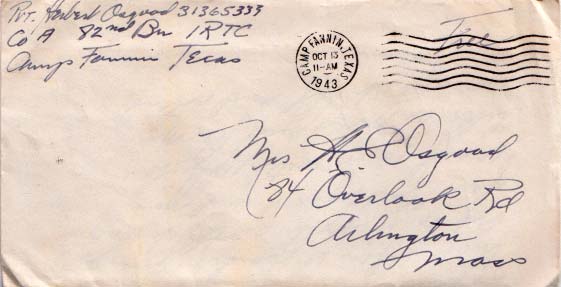 Pvt. Herbert Osgood 31365333
Co A 82nd Bn IRTC
Camp Fannin Texas
CAMP FANNIN, TEXAS
OCT 13
11-AM
1943
Free
Mrs H Osgood
84 Overlook Rd
Arlington
Mass